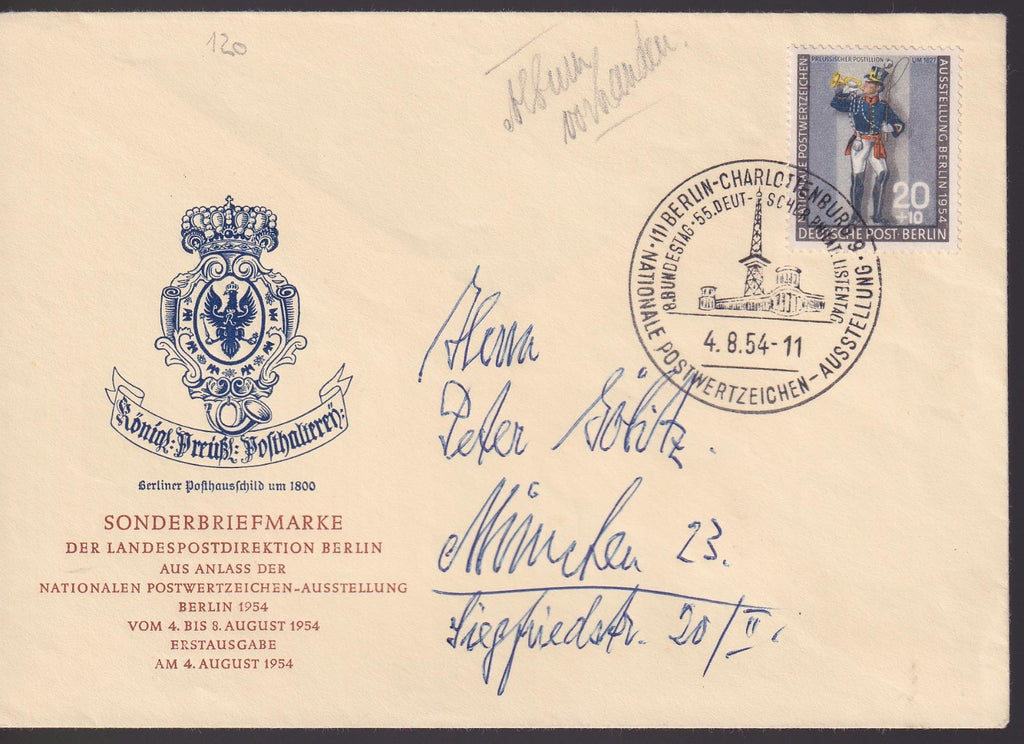 120
Album
vorhanden.
PREUSSISCHER POSTILLION UM 1827
NATIONALE POSTWERTZEICHEN
AUSSTELLUNG BERLIN 1954
20
+10
DEUTSCHE POST BERLIN
(1) BERLIN-CHARLOTTENBURG 9 ·
NATIONALE POSTWERTZEICHEN-AUSSTELLUNG ·
8.BUNDESTAG·55.DEUT-SCHER PHILATELISTENTAG
4.8.54-11
Königl: Preußl: Posthalterey:
Berliner Posthausschild um 1800
SONDERBRIEFMARKE
DER LANDESPOSTDIREKTION BERLIN
AUS ANLASS DER
NATIONALEN POSTWERTZEICHEN-AUSSTELLUNG
BERLIN 1954
VOM 4. BIS 8. AUGUST 1954
ERSTAUSGABE
AM 4. AUGUST 1954
Herrn
Peter Görlitz.
München 23.
Siegfriedstr. 20/II.